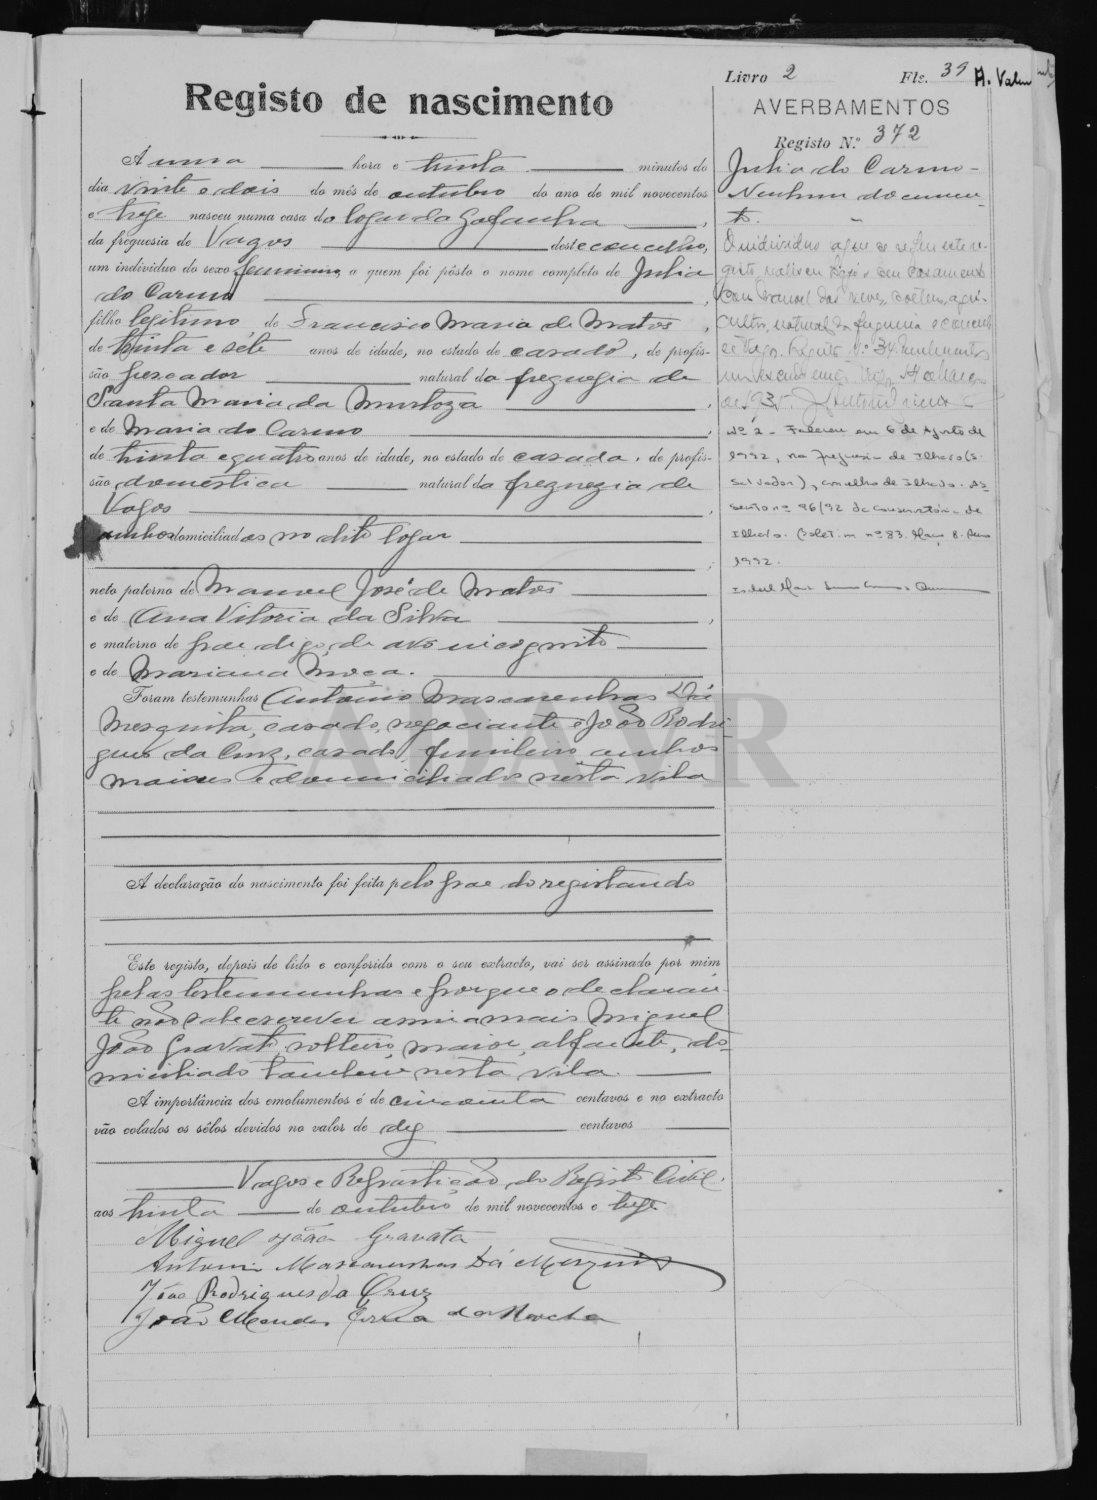 Livro 2 Fls. 39 A. Valm
Registo de nascimento
AVERBAMENTOS
Registo N.º 372
A uma hora e trinta minutos do
dia vinte e dois do mês de outubro do ano de mil novecentos
e treze nasceu numa casa do logar da Gafanha,
da freguesia de Vagos deste concelho,
um individuo do sexo feminino, a quem foi pôsto o nome completo de Julia
do Carmo,
filho legitimo, de Francisco Maria de Matos,
de trinta e sete anos de idade, no estado de casado, de profis-
são pescador natural da freguezia de
Santa Maria da Murtoza,
e de Maria do Carmo
de trinta e quatro anos de idade, no estado de casada, de profis-
são domestica natural da freguezia de
Vagos,
ambos domiciliados no dito logar
neto paterno de Manuel José de Matos
e de Ana Vitoria da Silva,
e materno de pae digo, de avô incognito
e de Mariana Moça.
Foram testemunhas Antonio Mascarenhas Dá
Mesquita, casado, negociante e João Rodri-
gues da Cruz, casado, funileiro ambos
maiores e domiciliados nesta vila
A declaração do nascimento foi feita pelo pae do registando
Este registo, depois de lido e conferido com o seu extracto, vai ser assinado por mim
pelas testemunhas e porque o declaran-
te não sabe escrever assina mais Miguel
João Gravato, solteiro, maior, alfaiate, do-
miciliado tambem nesta vila.
A importância dos emolumentos é de cincoenta centavos e no extracto
vão colados os sêlos devidos no valor de dez centavos
Vagos e Repartição do Registo Civil.
aos trinta de outubro de mil novecentos e treze
Miguel João Gravata
Antonio Mascarenhas Dá Mesquita
João Rodrigues da Cruz
João Mendes Correia da Rocha
Julia do Carmo -
Nenhum documen-
to.
O individuo a que se refere este re-
gisto, realizou hoje o seu casamento
com Manuel das Neves, agri-
cultor, natural da freguesia e concelho
de Vagos. Registo n.º 34.
de 1935.
Nº 2 - Faleceu em 6 de Agosto de
1992, na freguesia de Ilhavo (S.
Salvador), concelho de Ilhavo. As-
sento nº 96/92 da Conservatória de
Ilhavo. Bolet.im nº 83. Maço 8. Ano
1992.
ADAVR